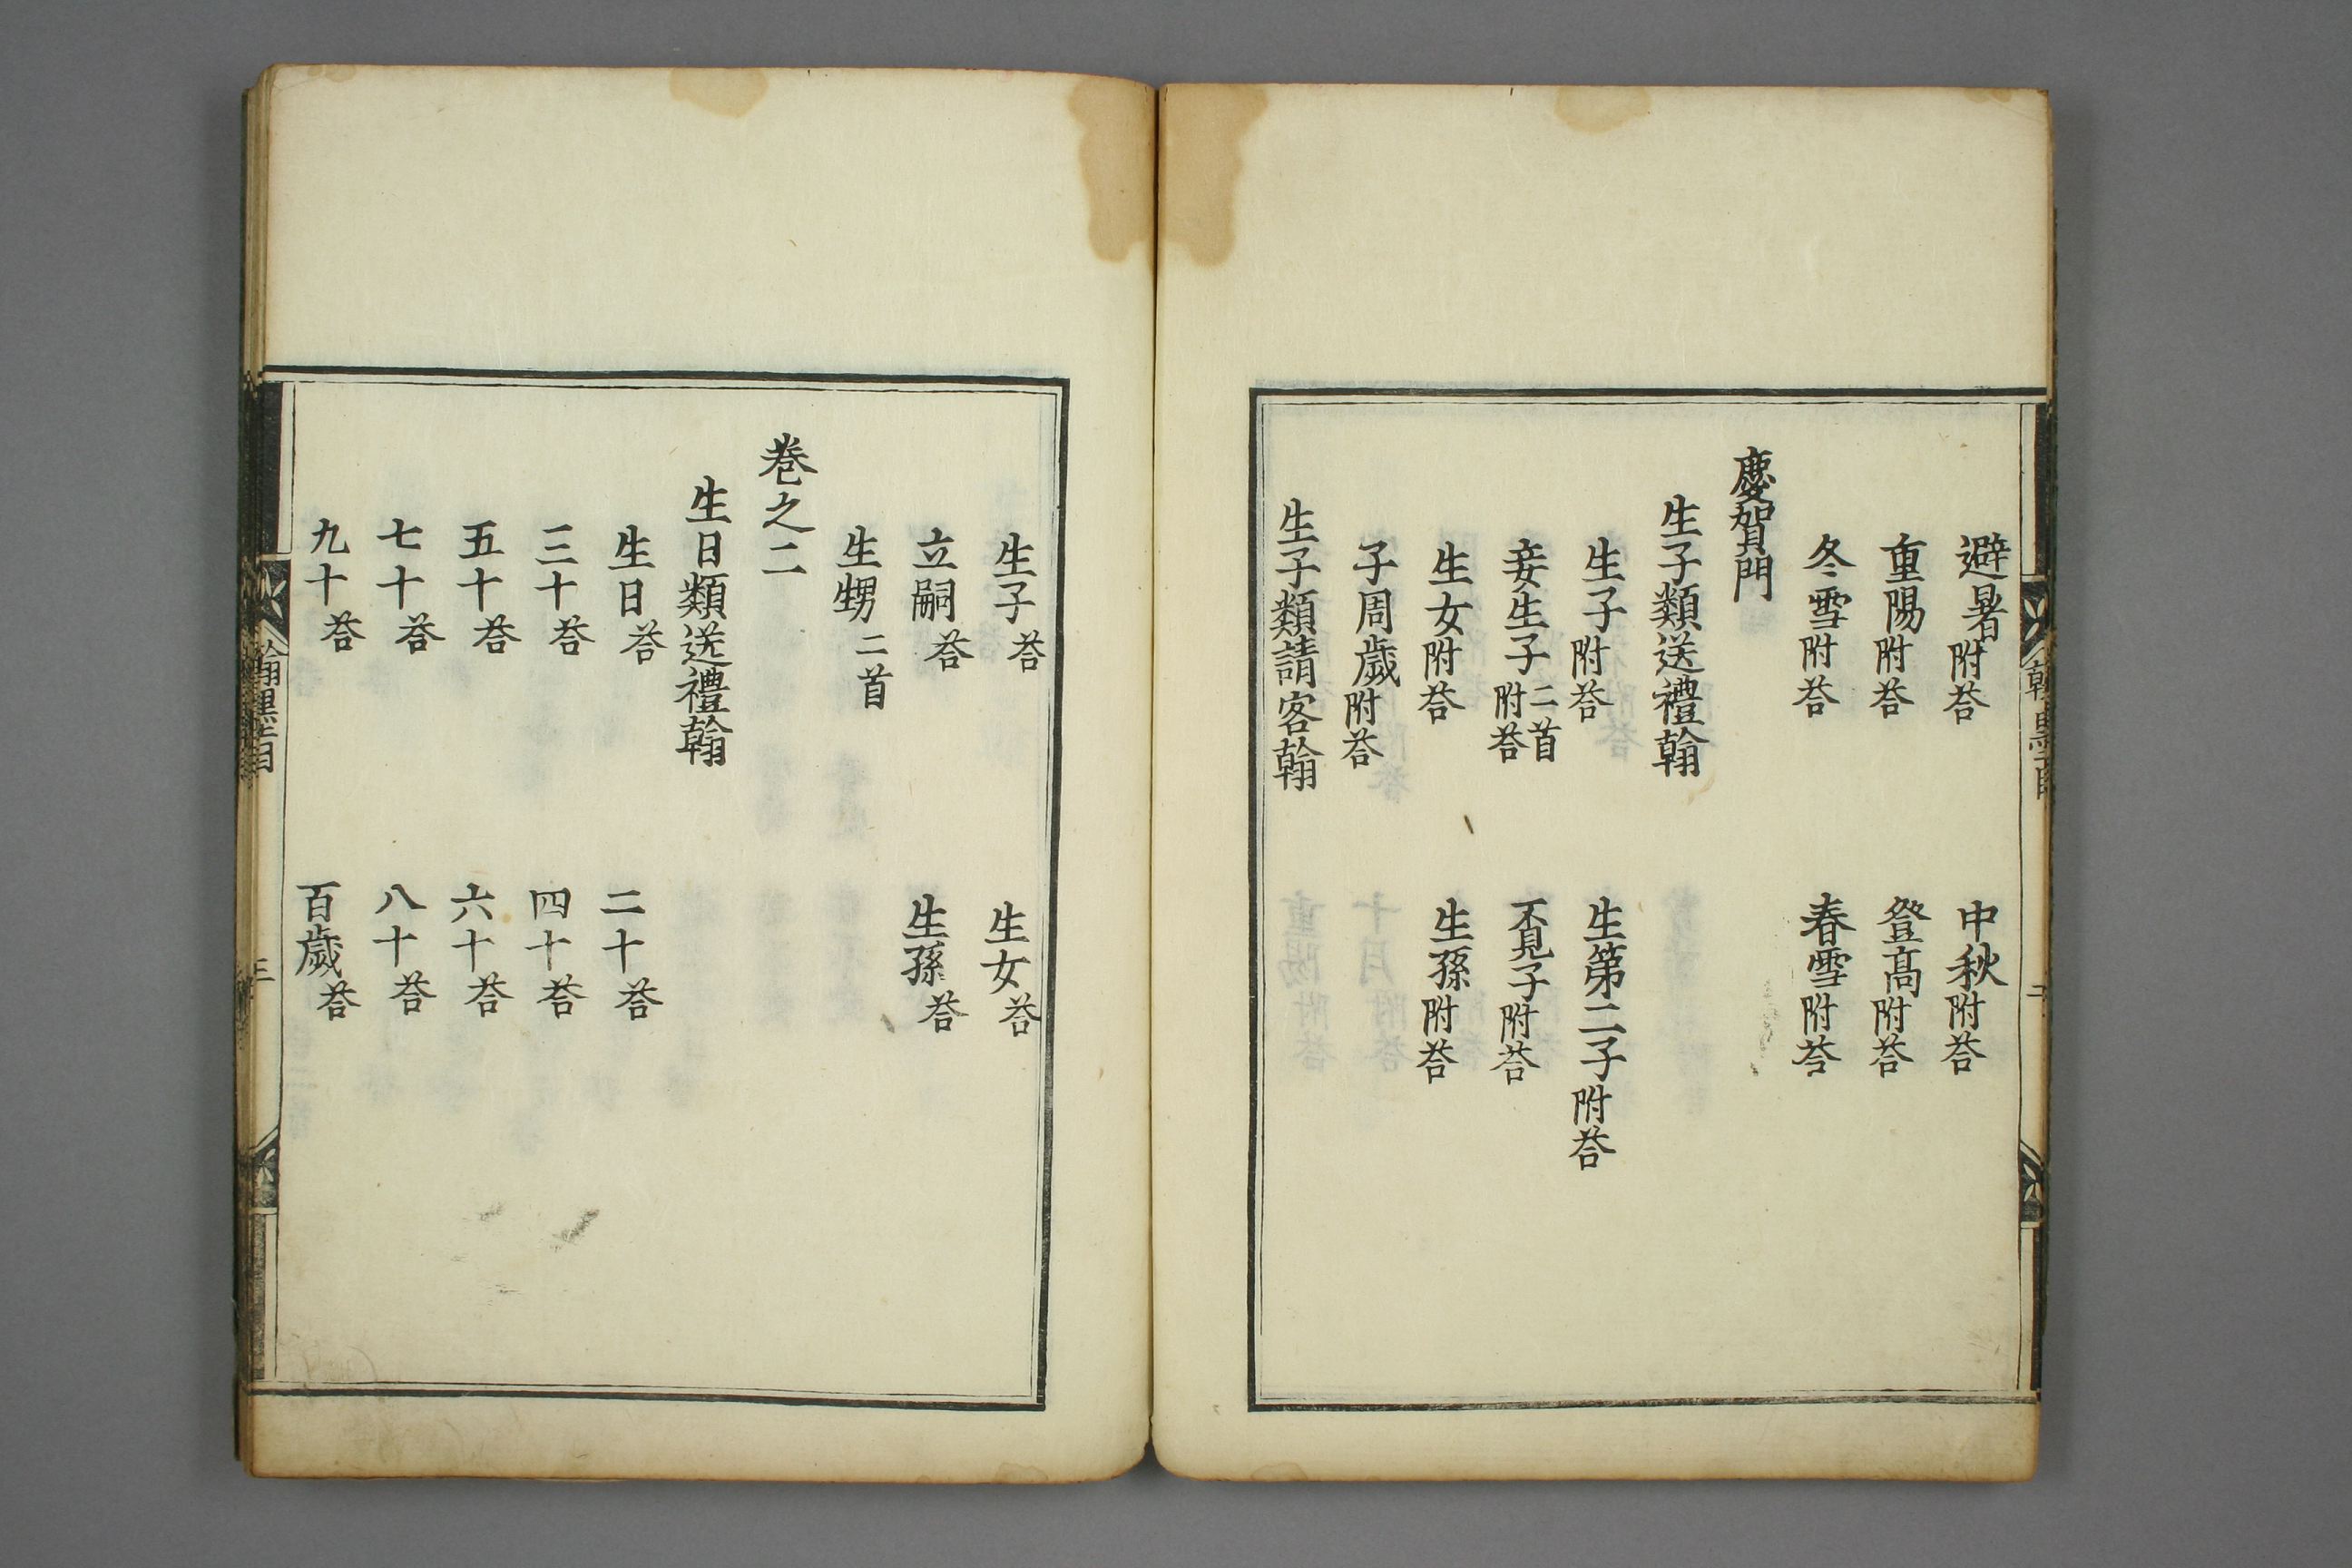 避暑附荅　中秋附荅
重陽附荅　登高附荅
冬雪附荅　春雪附荅
慶賀門
生子類送禮翰
生子附荅　生第二子附荅
妾生子二首附荅　覔子附荅
生女附荅　生孫附荅
子周歲附荅
生子類請客翰
生子荅　生女荅
立嗣荅　生孫荅
生甥二首
巻之二
生日類送禮翰
生日荅　二十荅
三十荅　四十荅
五十荅　六十荅
七十荅　八十荅
九十荅　百歲荅
三